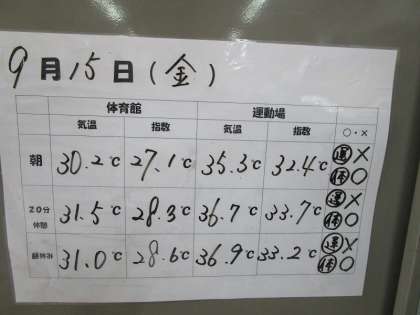 9月15日(金)
体育館 運動場
気温 指数 気温 指数 ○・×
朝 30.2℃ 27.1℃ 35.3℃ 32.4℃ 運× 体○
20分休憩 31.5℃ 28.3℃ 36.7℃ 33.7℃ 運× 体○
昼休み 31.0℃ 28.6℃ 36.9℃ 33.2℃ 運× 体○